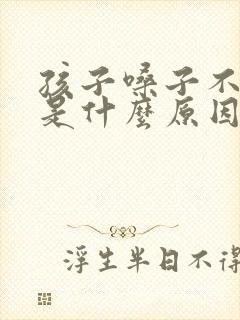 孩子嗓子不
是什麼原因
浮生半日不得